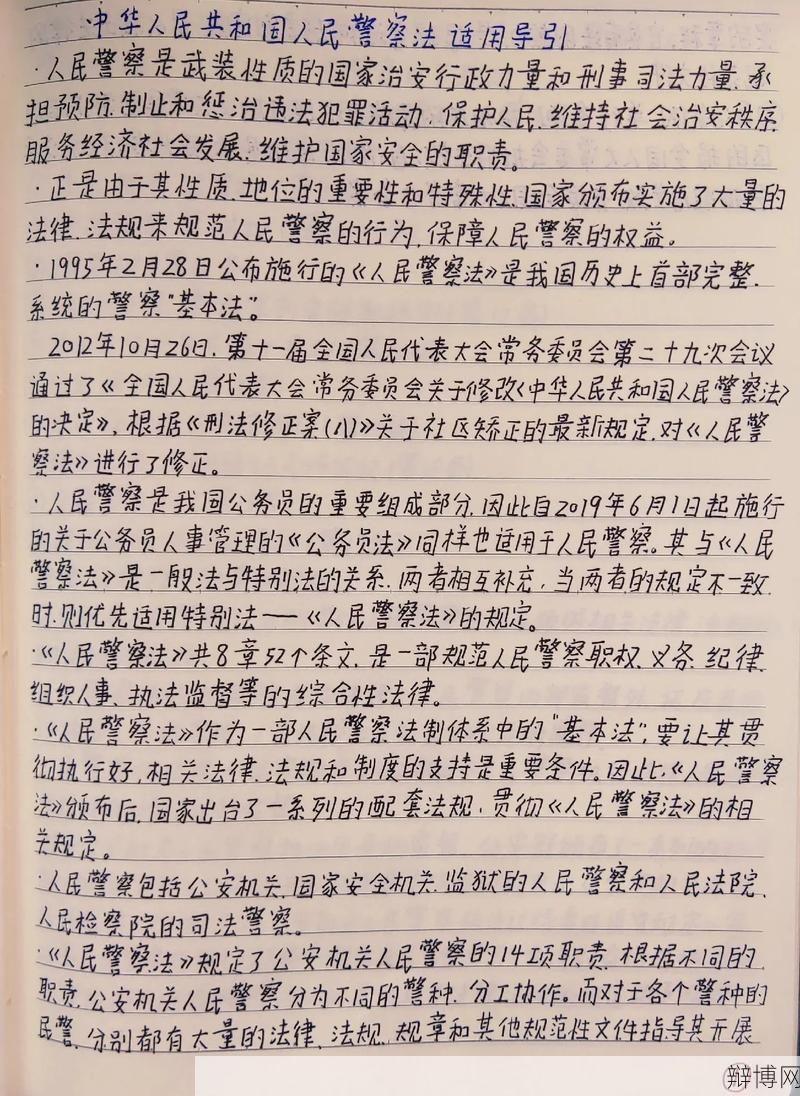 中华人民共和国人民警察法 适用导引
·人民警察是武装性质的国家治安行政力量和刑事司法力量、承
担预防、制止和惩治违法犯罪活动，保护人民、维持社会治安秩序、
服务经济社会发展、维护国家安全的职责。
·正是由于其性质、地位的重要性和特殊性、国家颁布实施了大量的
法律、法规来规范人民警察的行为，保障人民警察的权益。
·1995年2月28日公布施行的《人民警察法》是我国历史上首部完整、
系统的警察"基本法"。
2012年10月26日，第十一届全国人民代表大会常务委员会第二十九次会议
通过了《全国人民代表大会常务委员会关于修改〈中华人民共和国人民警察法〉
的决定》，根据《刑法修正案(八)》关于社区矫正的最新规定，对《人民警
察法》进行了修正。
·人民警察是我国公务员的重要组成部分，因此自2019年6月1日起施行
的关于公务员人事管理的《公务员法》同样也适用于人民警察。其与《人民
警察法》是一般法与特别法的关系，两者相互补充，当两者的规定不一致
时，则优先适用特别法——《人民警察法》的规定。
·《人民警察法》共8章52个条文，是一部规范人民警察职权、义务、纪律、
组织人事、执法监督等的综合性法律。
·《人民警察法》作为一部人民警察法制体系中的"基本法"，要让其贯
彻执行好，相关法律、法规和制度的支持是重要条件。因此，《人民警察
法》颁布后，国家出台了一系列的配套法规，贯彻《人民警察法》的相
关规定。
·人民警察包括公安机关、国家安全机关、监狱的人民警察和人民法院、
人民检察院的司法警察。
·《人民警察法》规定了公安机关人民警察的14项职责，根据不同的
职责，公安机关人民警察分为不同的警种，分工协作。而对于各个警种的
民警，分别都有大量的法律、法规、规章和其他规范性文件指导其开展
辩博网